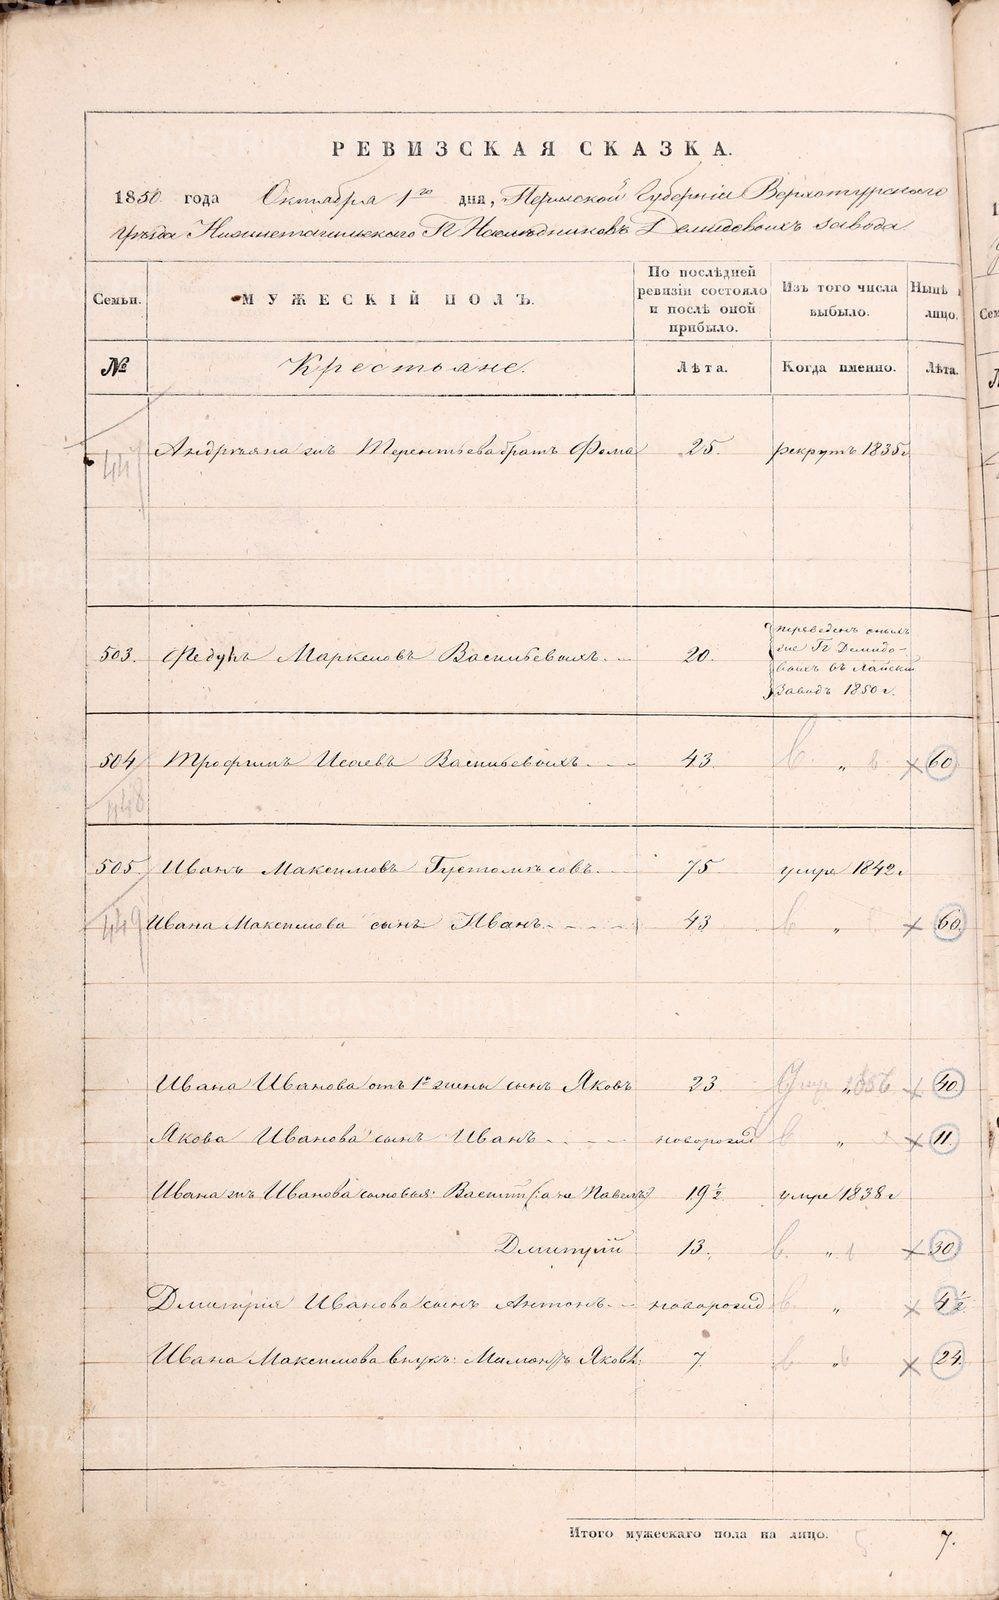 РЕВИЗСКАЯ СКАЗКА.
1850 года Октября 1го дня, Пермской Губерніи Верхотурского
уѣзда Нижнетагильского Гг Наслѣдниковъ Демидовыхъ завода
Семьи. МУЖЕСКІЙ ПОЛЪ. По послѣдней ревизіи состояло и послѣ оной прибыло. Изъ того числа выбыло. Нынѣ лицо.
№ Крестьяне. Лѣта. Когда именно. Лѣта.
447 Андреяна Терентьева братъ Фома 25. рекрутъ 1835 г
503. Маркеловъ Васильевыхъ 20. переведенъ Гг Демидовыхъ въ Лайскій заводъ 1850 г.
504 Трофимъ Исаевъ Васильевыхъ 43 " 60
448
505. Иванъ Максимовъ Густомѣсовъ 75 умре 1842 г
449 Ивана Максимова сынъ Иванъ 43 " 60
Ивана Иванова отъ 1й жены сынъ Яковъ 23 " 40
Якова Иванова сынъ Иванъ новорожд " 11.
Ивана Иванова сыновья: Василій (а не Павелъ) 19 ½ умре 1838 г
Дмитрій 13. " 30
Дмитрія Иванова сынъ Антонъ новорожд " 4 ½
Ивана Максимова внукъ: Яковл: 7. " 24
Итого мужескаго пола на лицо. 7.
METRIKI.GASO-URAL.RU